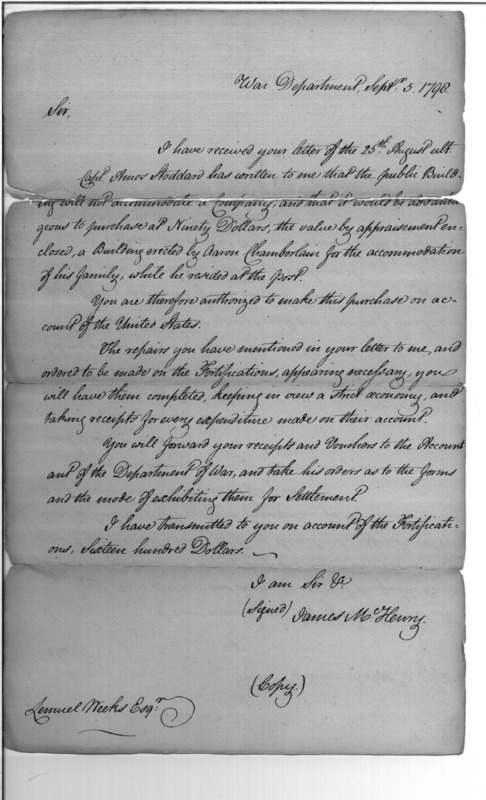 War Department, Septr. 5. 1798.
Sir,
I have received your letter of the 25th. August ult
Capt. Amos Stoddard has written to me that the public Build-
ing will not accommodate a Company, and that it would be advanta
geous to purchase at Ninety Dollars, the value by appraisement en-
closed, a Building erected by Aaron Chamberlain for the accommodation
of his family, while he resided at the post.
You are therefore authorized to make this purchase on ac-
count of the United States.
The repairs you have mentioned in your letter to me, and
ordered to be made on the Fortifications, appearing necessary, you
will have them completed, keeping in view a strict œconomy, and
taking receipts for every expenditure made on their account.
You will forward your receipts and Vouchers to the Account
ant of the Department of War, and take his orders as to the forms
and the mode of exhibiting them for Settlement.
I have transmitted to you on account of the Fortificati-
ons, Sixteen hundred Dollars.
I am Sir &c.
(Signed) James McHenry.
(Copy.)
Lemuel Weeks Esqr.